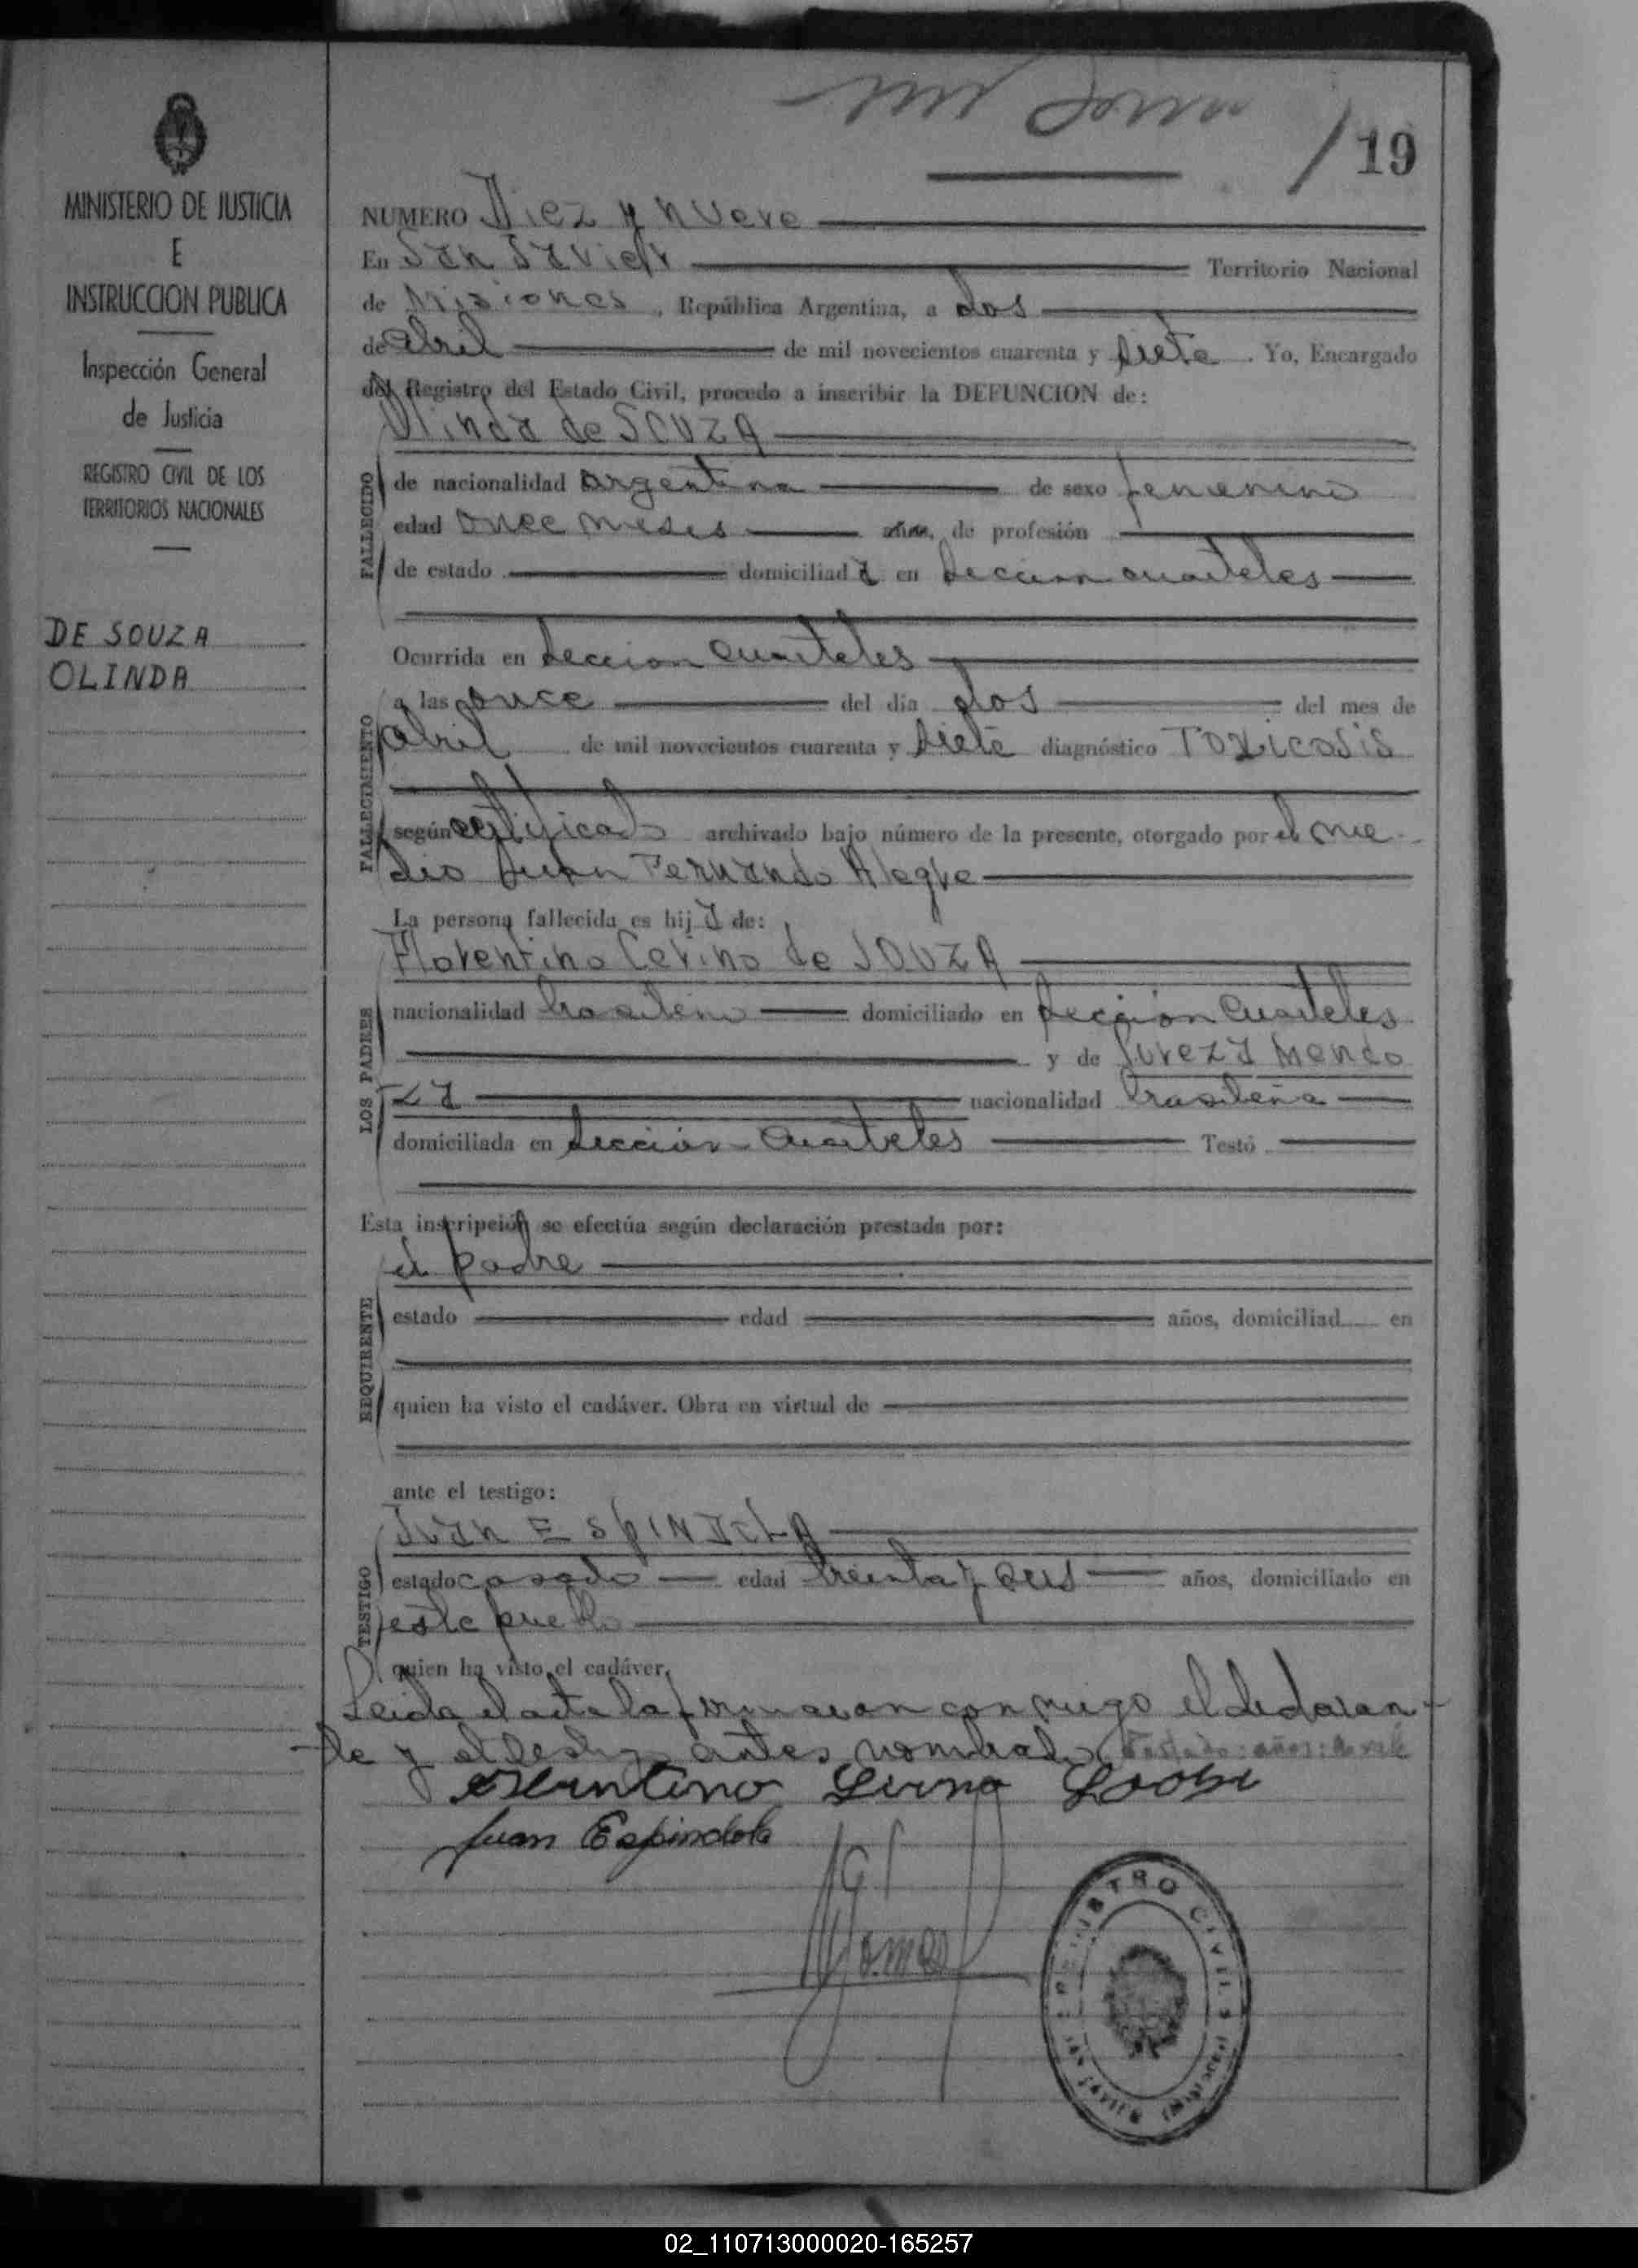 19
MINISTERIO DE JUSTICIA
E
INSTRUCCION PUBLICA
Inspección General
de Justicia
REGISTRO CIVIL DE LOS
TERRITORIOS NACIONALES
DE SOUZA
OLINDA
NUMERO Diez y nueve
En San Javier Territorio Nacional
de Misiones, República Argentina, a dos
de abril de mil novecientos cuarenta y siete. Yo, Encargado
del Registro del Estado Civil, procedo a inscribir la DEFUNCION de:
Olinda de SOUZA
FALLECIDO
de nacionalidad argentina de sexo femenino
edad once meses años, de profesión
de estado domiciliada en seccion cuarteles
FALLECIMIENTO
Ocurrida en seccion cuarteles
a las once del día dos del mes de
abril de mil novecientos cuarenta y siete diagnóstico Toxicosis
según certificado archivado bajo número de la presente, otorgado por el me-
dico Juan Fernando Alegre
LOS PADRES
La persona fallecida es hija de:
Florentino Cerino de SOUZA
nacionalidad brasileño domiciliado en sección cuarteles
y de Mendo
za nacionalidad brasileña
domiciliada en sección cuarteles Testó
Esta inscripción se efectúa según declaración prestada por:
REQUIRENTE
el padre
estado edad años, domiciliad en
quien ha visto el cadáver. Obra en virtud de
TESTIGO
ante el testigo:
Juan ESPINDOLA
estado casado edad treinta y años, domiciliado en
este pueblo
quien ha visto el cadáver.
Leida el acta la firmaron conmigo el declaran-
te y el testigo antes nombrado. Testado: años: no vale
Juan Espindola
REGISTRO CIVIL
SAN JAVIER (MISIONES)
02_110713000020-165257